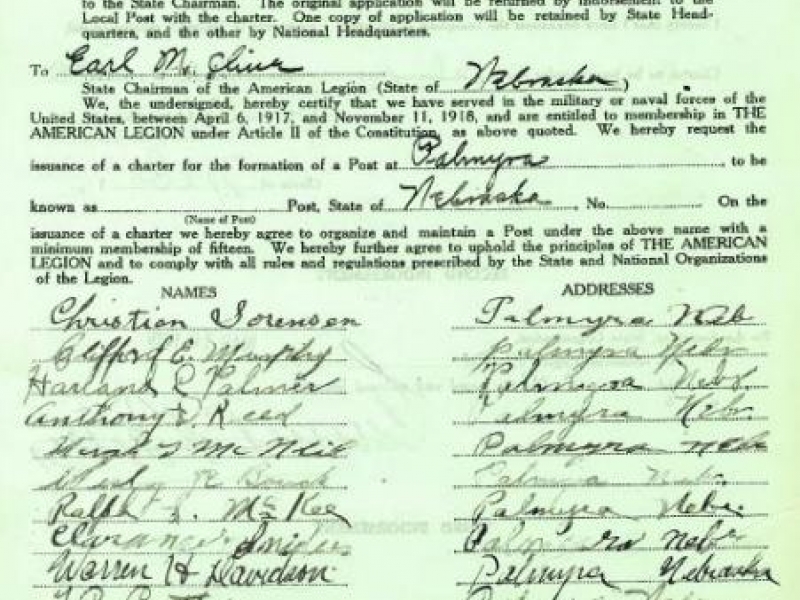 to the State Chairman. The original application will be returned by indorsement to the
Local Post with the charter. One copy of application will be retained by State Head-
quarters, and the other by National Headquarters.
To Earl M. Cline
State Chairman of the American Legion (State of Nebraska)
We, the undersigned, hereby certify that we have served in the military or naval forces of the
United States, between April 6, 1917, and November 11, 1918, and are entitled to membership in THE
AMERICAN LEGION under Article II of the Constitution, as above quoted. We hereby request the
issuance of a charter for the formation of a Post at Palmyra to be
known as Post, State of Nebraska No. On the
(Name of Post)
issuance of a charter we hereby agree to organize and maintain a Post under the above name with a
minimum membership of fifteen. We hereby further agree to uphold the principles of THE AMERICAN
LEGION and to comply with all rules and regulations prescribed by the State and National Organizations
of the Legion.
NAMES ADDRESSES
Christian Sorensen Palmyra Neb
Clifford E. Murphy Palmyra Nebr
Harland C Palmer Palmyra Nebr.
Anthony Reed Palmyra Nebr.
Hugh McNeil Palmyra Neb
R Palmyra Nebr.
Ralph McKee Palmyra Nebr.
Clarance Snider Palmyra Nebr
Warren H Davidson Palmyra Nebraska